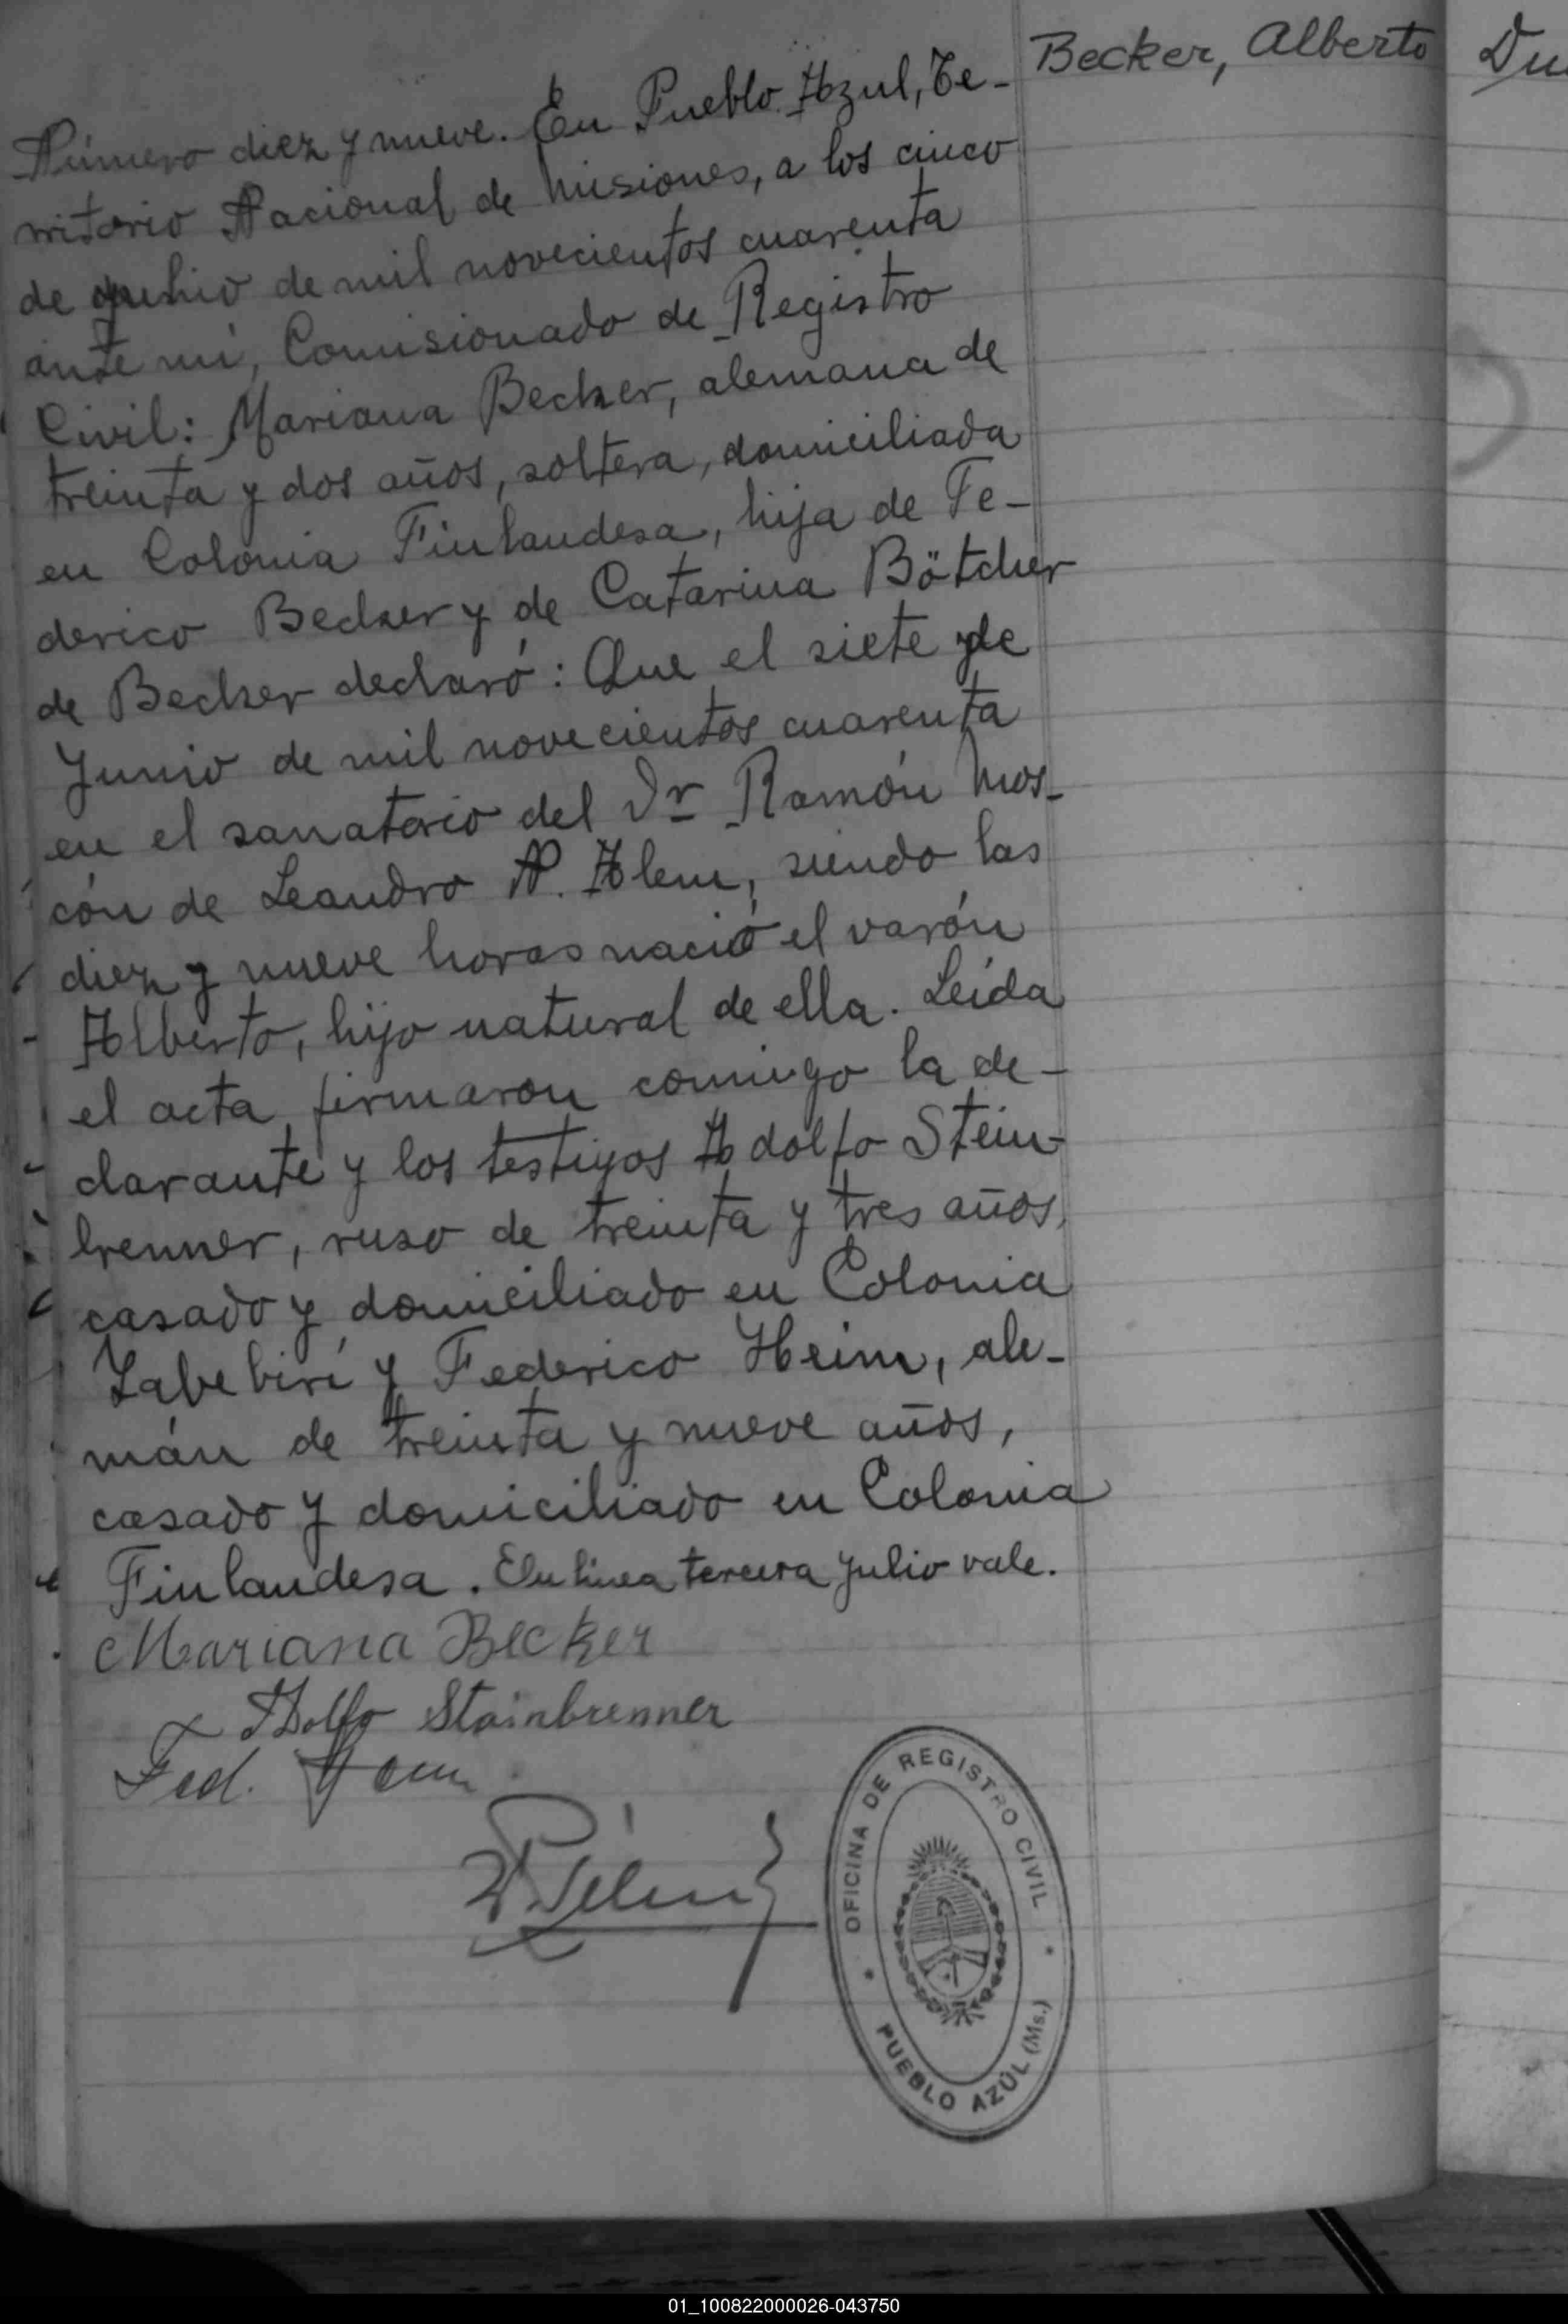 Becker, Alberto
Número diez y nueve. En Pueblo Azul, Te-
rritorio Nacional de Misiones, a los cinco
de julio de mil novecientos cuarenta
ante mí, Comisionado de Registro
Civil: Mariana Becker, alemana de
treinta y dos años, soltera, domiciliada
en Colonia Finlandesa, hija de Fe-
derico Becker y de Catarina Bötcher
de Becker declaró: Que el siete de
Junio de mil novecientos cuarenta
en el sanatorio del Dr Ramón Mos-
cón de Leandro N. Alem, siendo las
diez y nueve horas nació el varón
Alberto, hijo natural de ella. Leída
el acta firmaron conmigo la de-
clarante y los testigos Adolfo Stein-
brenner, ruso de treinta y tres años,
casado y domiciliado en Colonia
Yabebirí y Federico Heim, ale-
mán de treinta y nueve años,
casado y domiciliado en Colonia
Finlandesa. En línea tercera julio vale.
Mariana Becker
Adolfo Stainbrenner
Fed.
OFICINA DE REGISTRO CIVIL
* PUEBLO AZÚL (Ms.) *
01_100822000026-043750